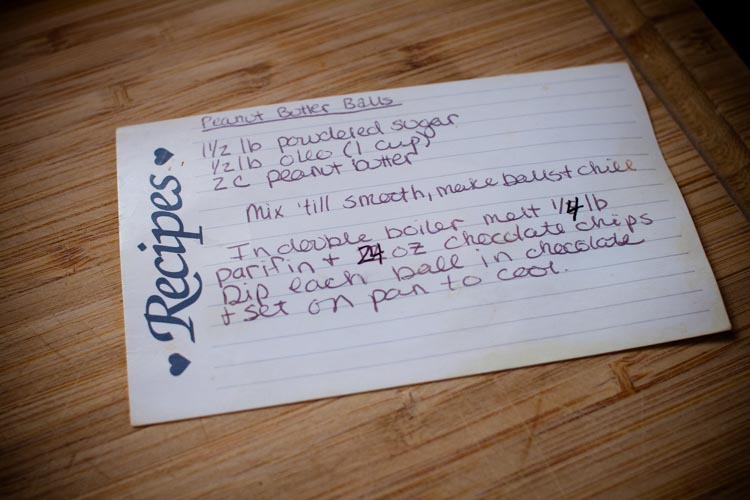 Recipes
Peanut Butter Balls
1 1/2 lb powdered sugar
1/2 lb oleo (1 cup)
2 c peanut butter
Mix 'till smooth, make balls + chill
In double boiler melt 1/4 lb
parifin + 24 oz chocolate chips
Dip each ball in chocolate
+ set on pan to cool.